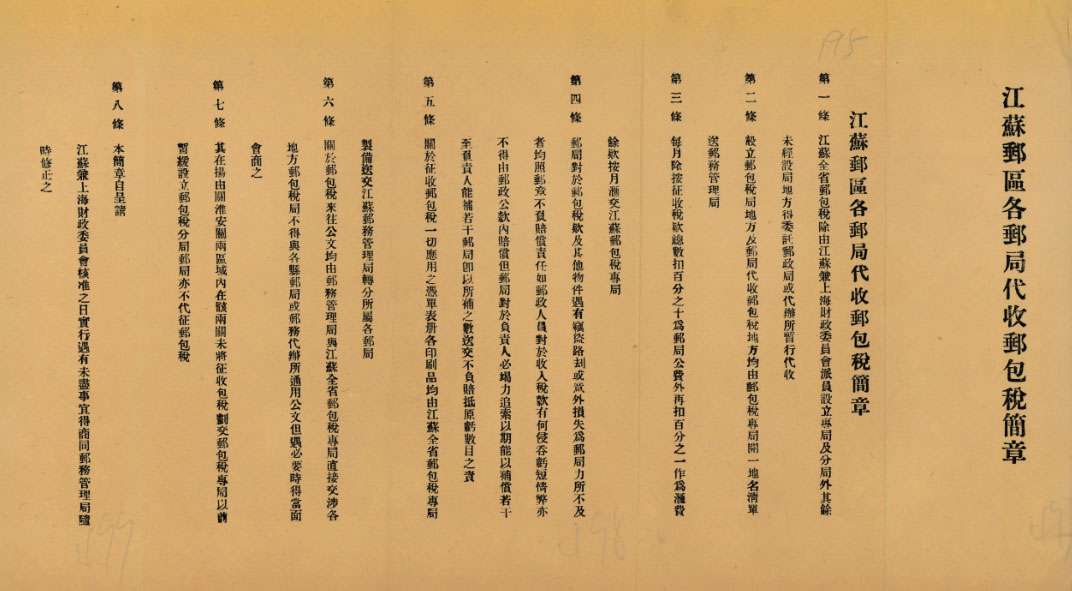 江蘇郵區各郵局代收郵包稅簡章
195
江蘇郵區各郵局代收郵包稅簡章
第一條　江蘇全省郵包稅除由江蘇兼上海財政委員會派員設立專局及分局外其餘
未經設局地方得委託郵政局或代辦所暫行代收
第二條　設立郵包稅局地方及郵局代收郵包稅地方均由郵包稅專局開一地名清單
送郵務管理局
第三條　每月除按征收稅欵總數扣百分之十爲郵局公費外再扣百分之一作爲滙費
餘欵按月滙交江蘇郵包稅專局
第四條　郵局對於郵包稅欵及其他物件遇有竊盜路刦或意外損失爲郵局力所不及
者均照郵章不負賠償責任如郵政人員對於收入稅欵有何侵吞虧短情弊亦
不得由郵政公欵內賠償但郵局對於負責人必竭力追索以期能以補償若干
至負責人能補若干郵局卽以所補之數送交不負賠抵原虧數目之責
第五條　關於征收郵包稅一切應用之憑單表册各印刷品均由江蘇全省郵包稅專局
製備送交江蘇郵務管理局轉分所屬各郵局
第六條　關於郵包稅來往公文均由郵務管理局與江蘇全省郵包稅專局直接交涉各
地方郵包稅局不得與各縣郵局或郵務代辦所通用公文但遇必要時得當面
會商之
第七條　其在揚由關淮安關兩區域內在該兩關未將征收包稅劃交郵包稅專局以前
暫緩設立郵包稅分局郵局亦不代征郵包稅
第八條　本簡章自呈請
江蘇兼上海財政委員會核准之日實行遇有未盡事宜得商同郵務管理局隨
時修正之